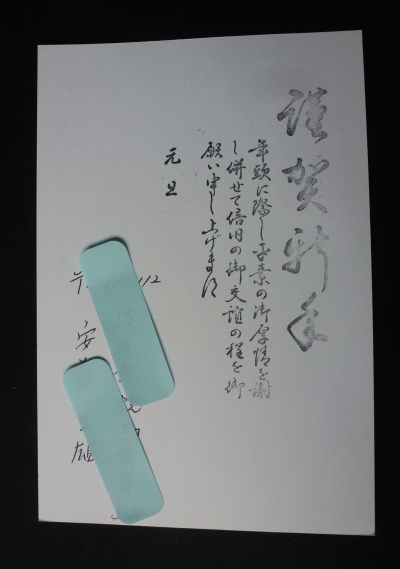 謹賀新年
年頭に際し平素の御厚情を謝
し併せて倍旧の御交誼の程を御
願い申し上げます
元旦
安
雄